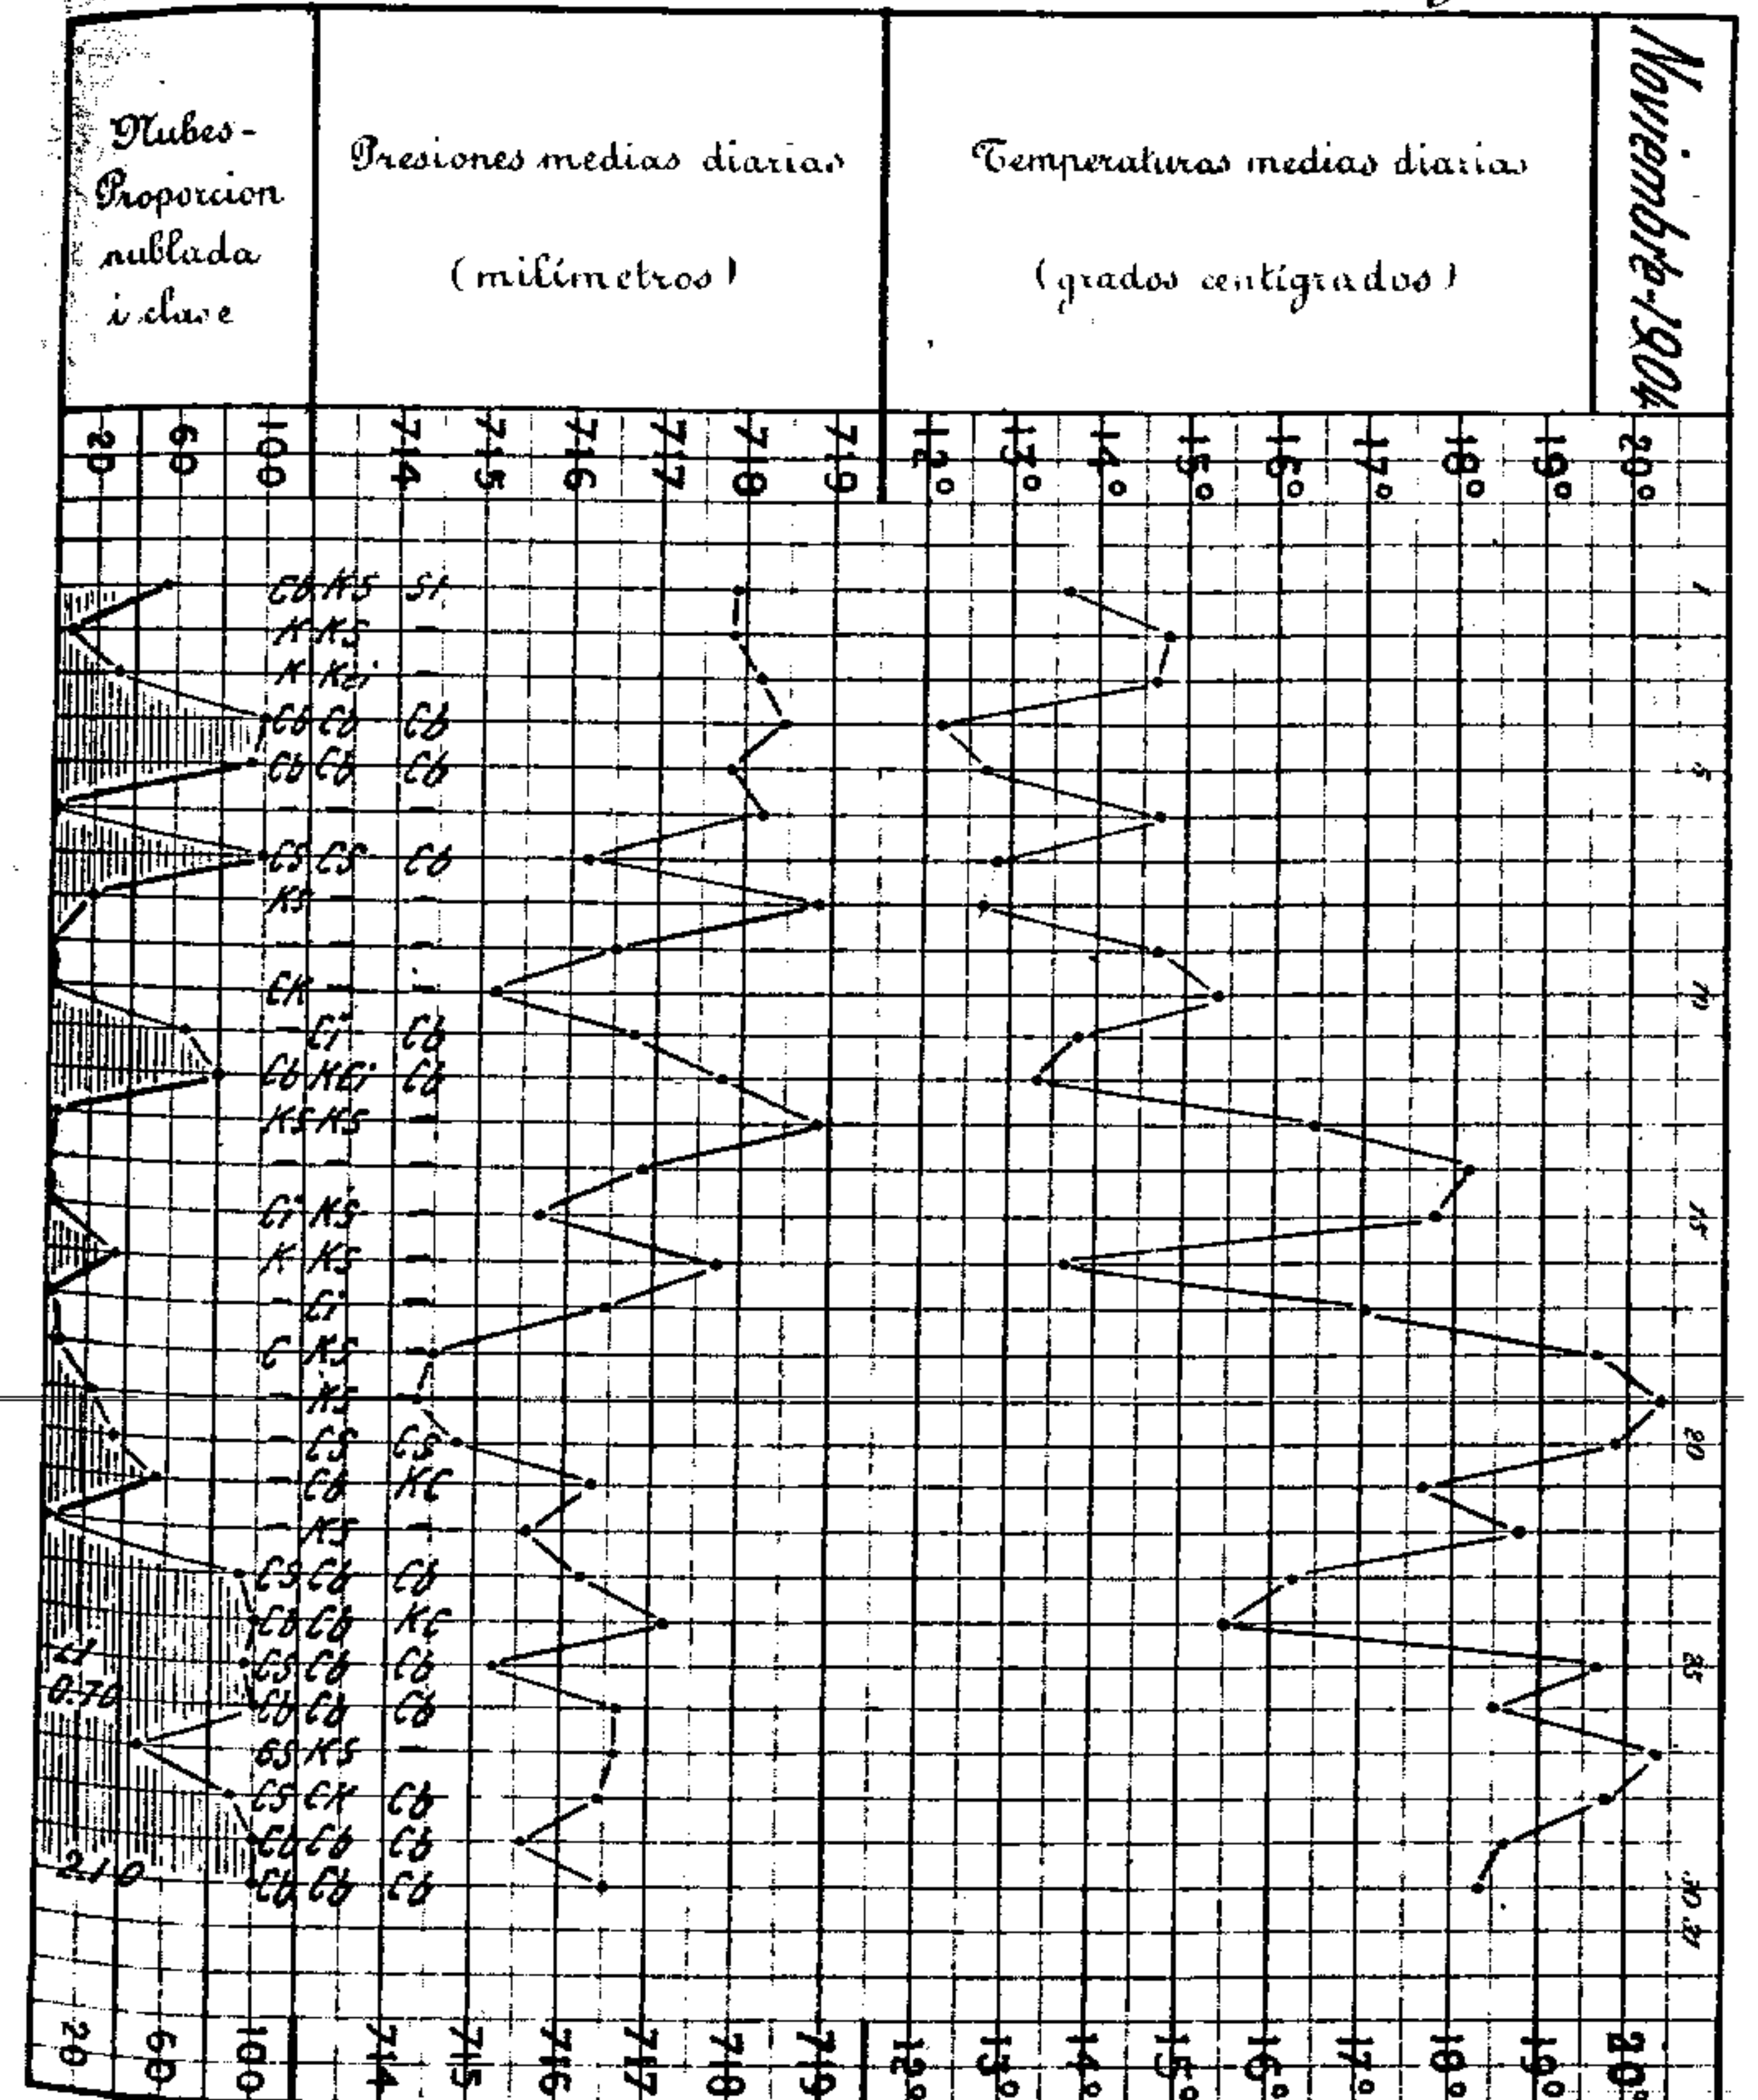 Nubes-
Proporcion
nublada
i clase
Presiones medias diarias
(milímetros)
Temperaturas medias diarias
(grados centígrados)
Noviembre-1904
20 60 100 714 715 716 717 718 719 12° 13° 14° 15° 16° 17° 18° 19° 20°
Cb KS St 1
K KS -
K Kci -
Cb Cb Cb
Cb Cb Cb 5
- - -
CS CS Cb
KS - -
- - -
CK - - 10
- Ci Cb
Cb KCi Cb
KS KS -
- - -
Ci KS - 15
K KS -
- Ci -
C KS -
- KS
- CS CS 20
- Cb KC
- KS -
CS Cb Cb
Cb Cb KC
CS Cb Cb 25
0.70 Cb Cb Cb
KS -
CS CK Cb
Cb Cb Cb
2.10 Cb Cb Cb 30 31
20 60 100 714 715 716 717 718 719 12° 13° 14° 15° 16° 17° 18° 19° 20°